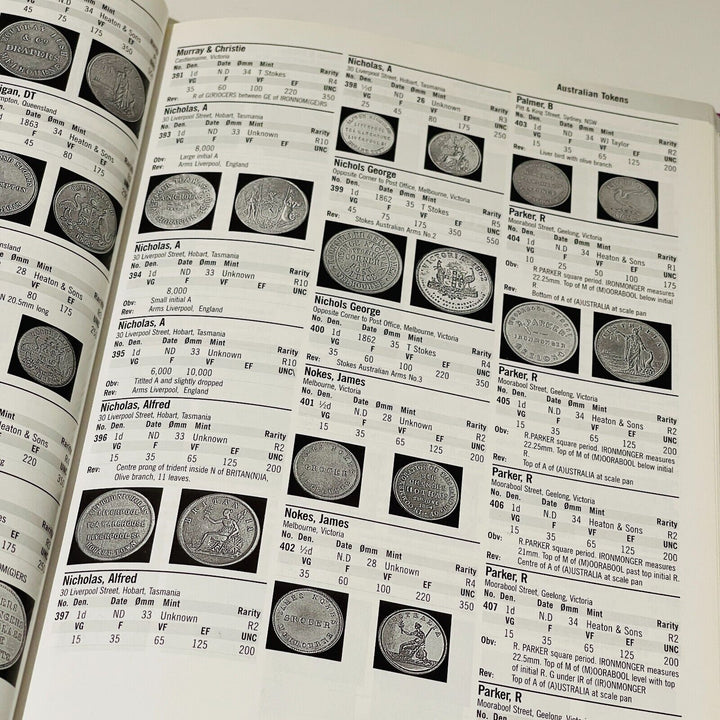 Heaton & Sons
VF EF
125 350
igan, DT
mpton, Queensland
Date Ømm Mint
1863 34 Heaton & Sons
F VF EF
45 80 175
nsland
Ømm Mint
28 Heaton & Sons
VF EF
80 220
N 20.5mm long
Mint
Heaton & Sons
EF
175 250
Mint
Heaton & Sons
EF
220 350
Murray & Christie
Castlemaine, Victoria
No. Den. Date Ømm Mint Rarity
391 1d N.D 34 T Stokes R4
VG F VF EF UNC
35 60 100 225 400
Rev: R of G(R)OCERS between GE of IRONMON(GE)RS
Nicholas, A
30 Liverpool Street, Hobart, Tasmania
No. Den. Date Ømm Mint Rarity
393 1d ND 33 Unknown R10
VG F VF EF UNC
8,000
Obv: Large initial A
Rev: Arms Liverpool, England
Nicholas, A
30 Liverpool Street, Hobart, Tasmania
No. Den. Date Ømm Mint Rarity
394 1d ND 33 Unknown R10
VG F VF EF UNC
8,000
Obv: Small initial A
Rev: Arms Liverpool, England
Nicholas, A
30 Liverpool Street, Hobart, Tasmania
No. Den. Date Ømm Mint Rarity
395 1d ND 33 Unknown R10
VG F VF EF UNC
6,000 10,000
Obv: Tiltted A and slightly dropped
Rev: Arms Liverpool, England
Nicholas, Alfred
30 Liverpool Street, Hobart, Tasmania
No. Den. Date Ømm Mint Rarity
396 1d ND 33 Unknown R2
VG F VF EF UNC
15 35 65 125 200
Rev: Centre prong of trident inside N of BRITAN(N)IA,
Olive branch, 11 leaves.
Nicholas, Alfred
30 Liverpool Street, Hobart, Tasmania
No. Den. Date Ømm Mint Rarity
397 1d ND 33 Unknown R2
VG F VF EF UNC
15 35 65 125 200
Nicholas, A
30 Liverpool Street, Hobart, Tasmania
No. Den. Date Ømm Mint Rarity
398 ½d N.D 28 Unknown R3
VG F VF EF UNC
25 45 80 175 250
Nichols George
Opposite Corner to Post Office, Melbourne, Victoria
No. Den. Date Ømm Mint Rarity
399 1d 1862 35 T Stokes R5
VG F VF EF UNC
45 75 175 350 550
Rev: Stokes Australian Arms No.2
Nichols George
Opposite Corner to Post Office, Melbourne, Victoria
No. Den. Date Ømm Mint Rarity
400 1d 1862 34 T Stokes R4
VG F VF EF UNC
35 60 100 220 350
Rev: Stokes Australian Arms No.3
Nokes, James
Melbourne, Victoria
No. Den. Date Ømm Mint Rarity
401 ½d N.D 28 Unknown R2
VG F VF EF UNC
15 35 65 125 200
Nokes, James
Melbourne, Victoria
No. Den. Date Ømm Mint Rarity
402 ½d N.D 28 Unknown R4
VG F VF EF UNC
35 60 100 220 350
Australian Tokens
Palmer, B
Pitt & King Street, Sydney, NSW
No. Den. Date Ømm Mint Rarity
403 1d N.D 34 WJ Taylor R2
VG F VF EF UNC
15 35 65 125 200
Rev: Liver bird with olive branch.
Parker, R
Moorabool Street, Geelong, Victoria
No. Den. Date Ømm Mint Rarity
404 1d N.D 34 Heaton & Sons R1
VG F VF EF UNC
10 25 50 100 175
Obv: R.PARKER square period. IRONMONGER measures
22.25mm. Top of M of (M)OORABOOL below initial
R
Rev: Bottom of A of (A)USTRALIA at scale pan
Parker, R
Moorabool Street, Geelong, Victoria
No. Den. Date Ømm Mint Rarity
405 1d N.D 34 Heaton & Sons R2
VG F VF EF UNC
15 35 65 125 200
Obv: R.PARKER square period. IRONMONGER measures
22.25mm. Top of M of (M)OORABOOL below initial
R
Rev: Top of A of (A)USTRALIA at scale pan
Parker, R
Moorabool Street, Geelong, Victoria
No. Den. Date Ømm Mint Rarity
406 1d N.D 34 Heaton & Sons R2
VG F VF EF UNC
15 35 65 125 200
Obv: R.PARKER square period. IRONMONGER measures
21mm. Top of M of (M)OORABOOL past top initial R.
Rev: Centre of A of (A)USTRALIA at scale pan
Parker, R
Moorabool Street, Geelong, Victoria
No. Den. Date Ømm Mint Rarity
407 1d N.D 34 Heaton & Sons R2
VG F VF EF UNC
15 35 65 125 200
Obv: R. PARKER square period. IRONMONGER measures
22.5mm. Top of M of (M)OORABOOL level with top
of initial R. G under IR of (IR)ONMONGER
Rev: Top of A of (A)USTRALIA at scale pan
Parker, R
Moorabool Street, Geelong, Victoria